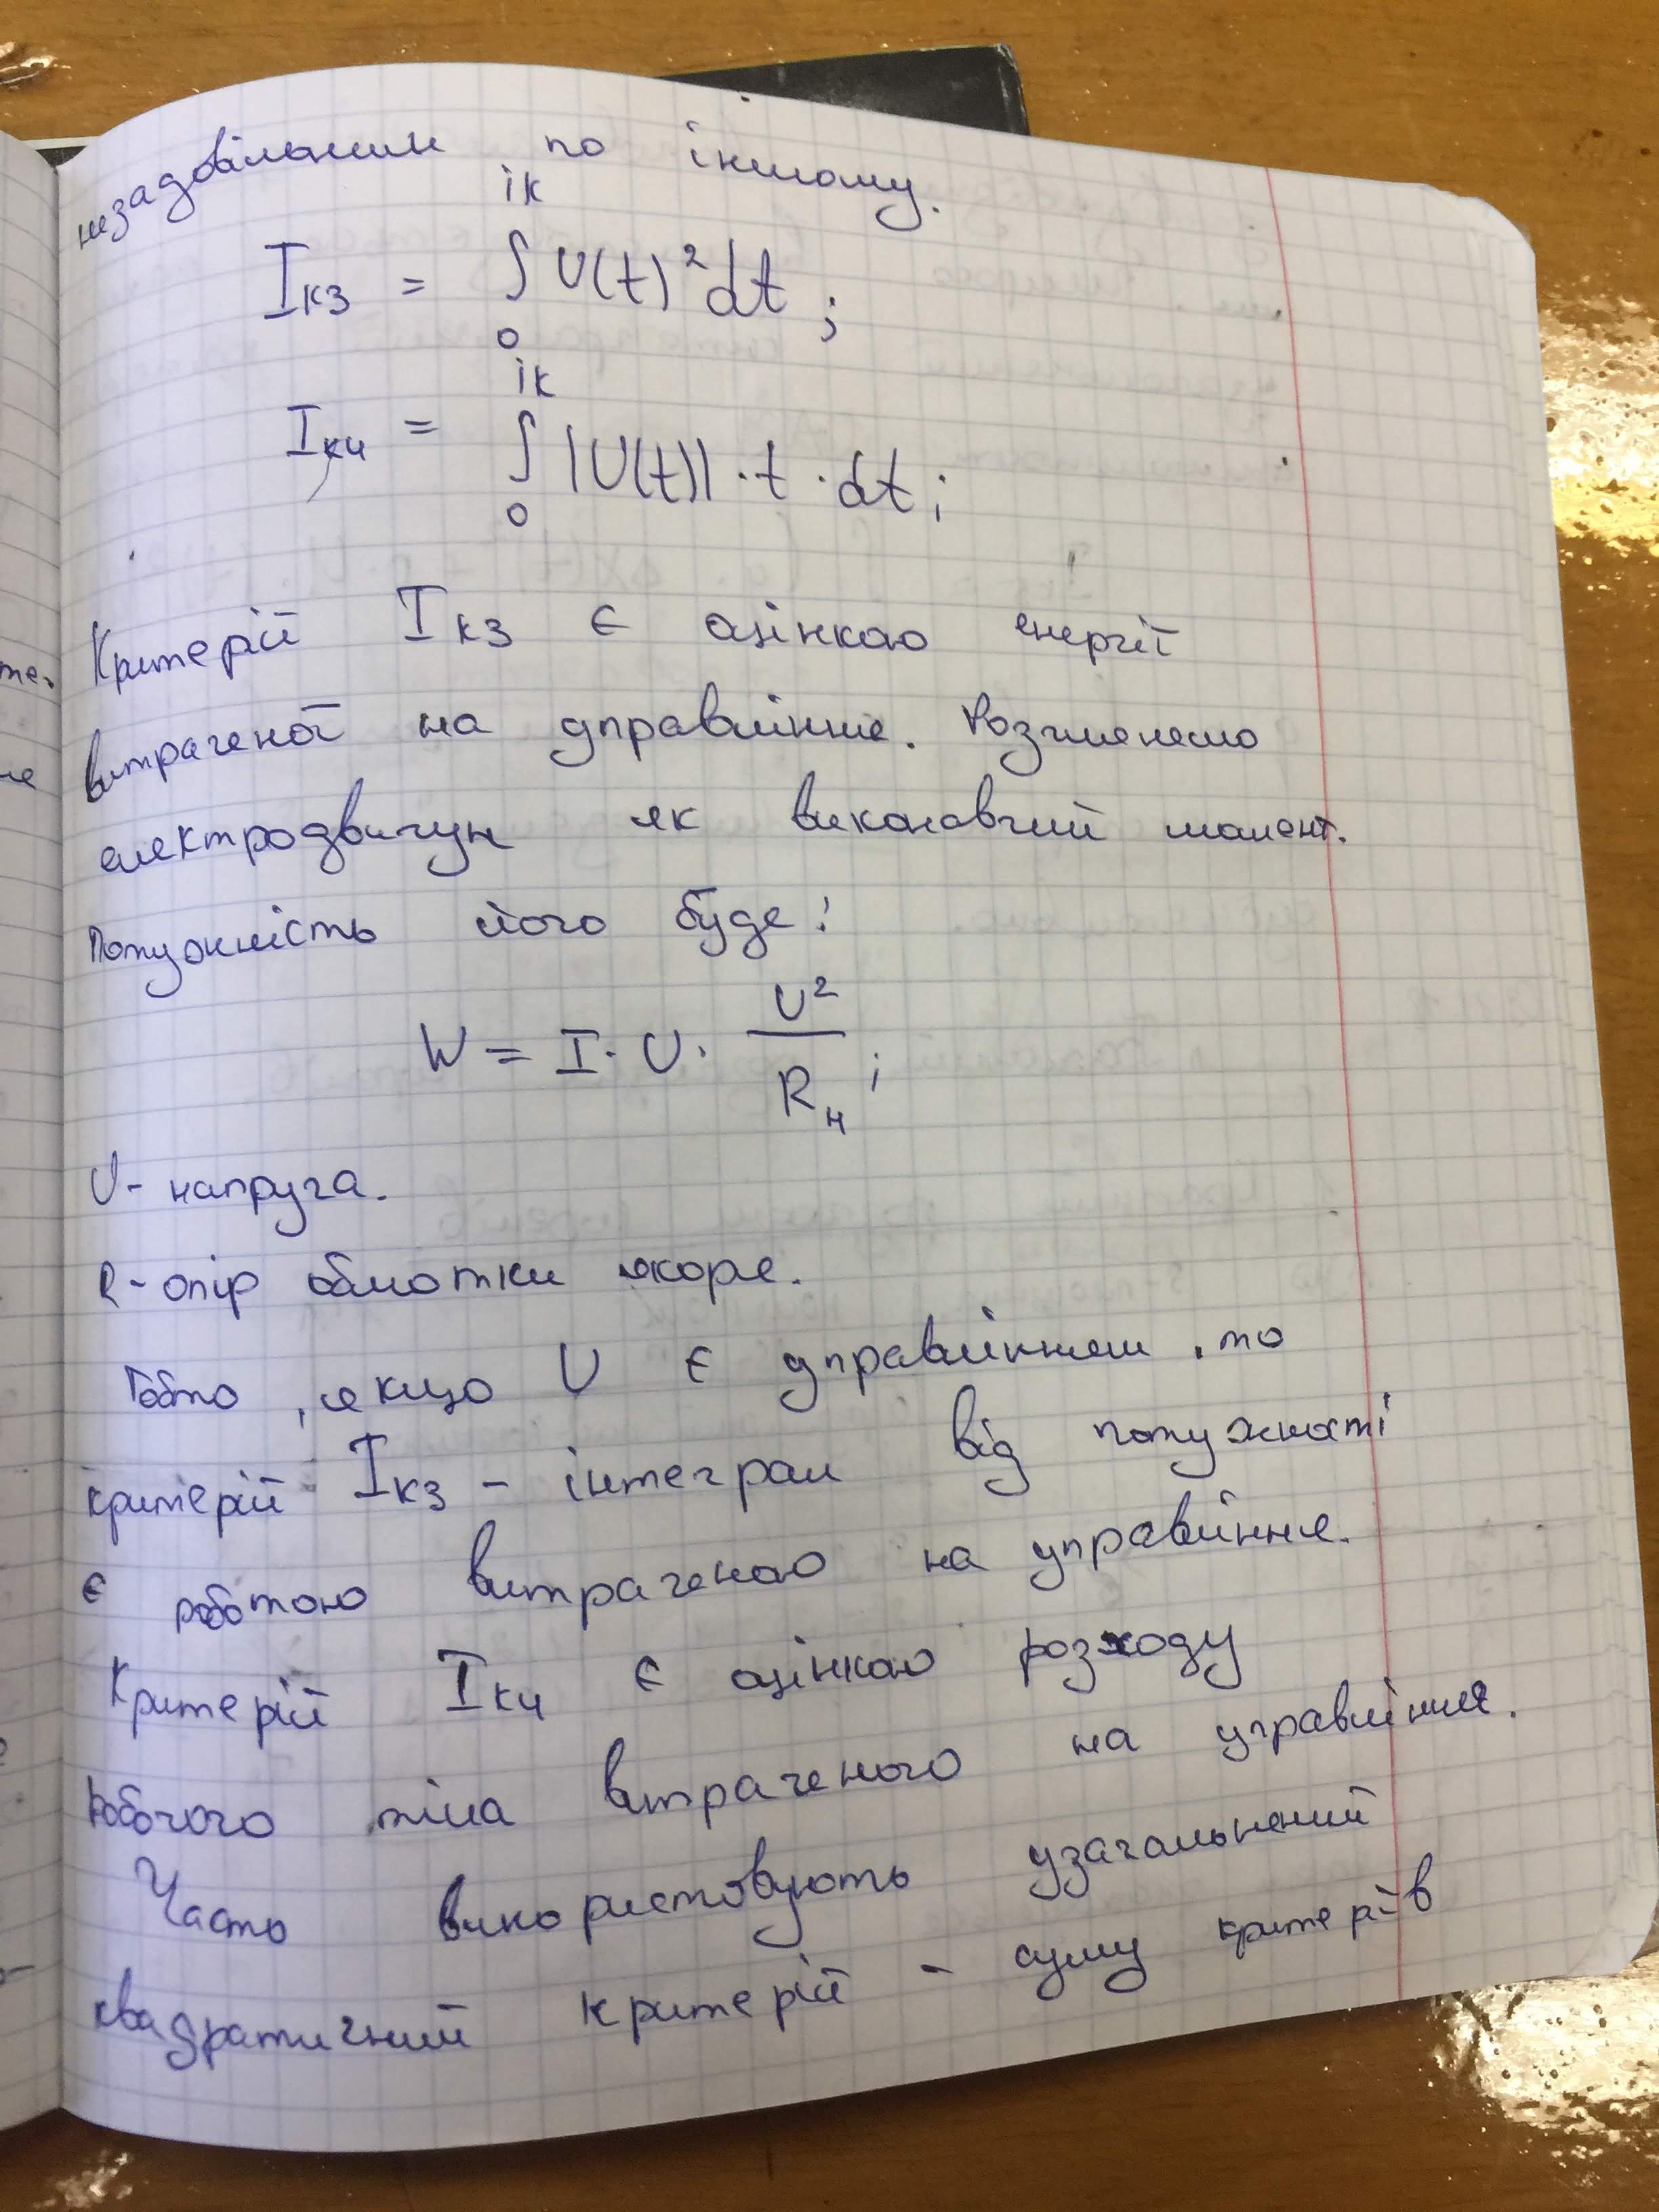 незадовільним по іншому.
iк
I кз = ∫ U(t)² dt ;
0
iк
I кч = ∫ |U(t)| · t · dt ;
0
Критерій I кз є оцінкою енергії
витраченої на управління. Розглянемо
електродвигун як виконавчий момент.
Потужність його буде:
W = I · U · U² / Rн ;
U - напруга.
R - опір обмотки якоря.
Тобто, якщо U є управлінням, то
критерій I кз - інтеграл від потужності
є роботою витраченою на управління.
Критерій I кч є оцінкою розходу
робочого тіла витраченого на управління.
Часто використовують узагальнений
квадратичний критерій - суму критеріїв